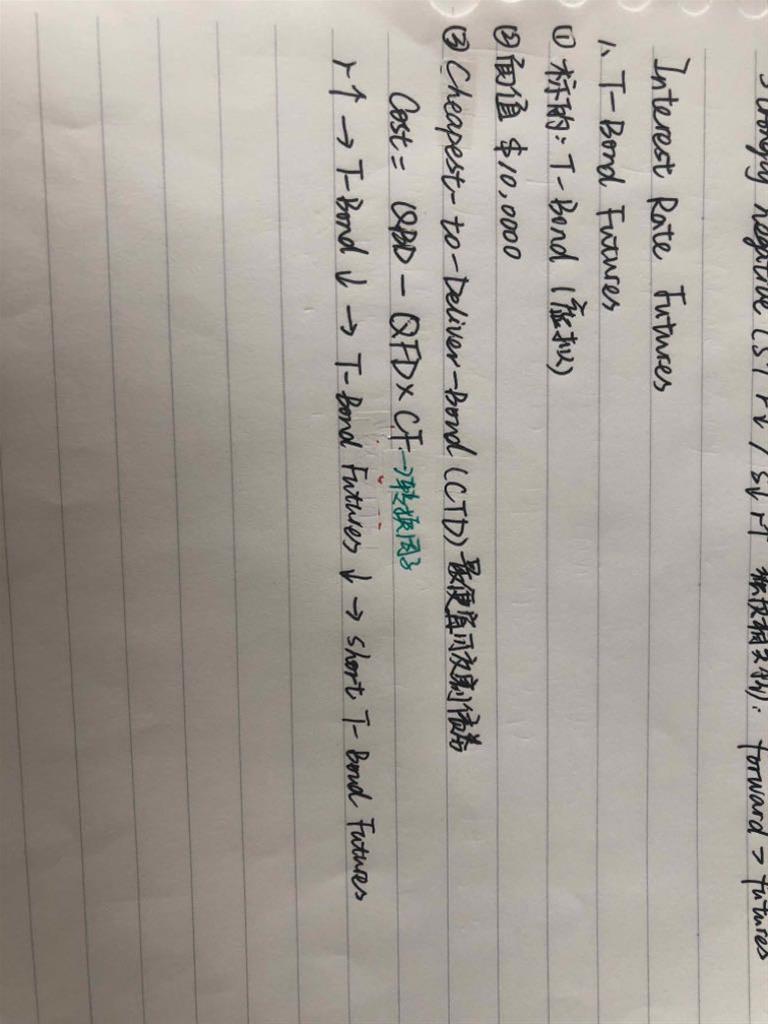 Strongly negative (S↑ r↓ / S↓ r↑ 强负相关钩): forward > futures
Interest Rate Futures
1、T-Bond Futures
① 标的: T-Bond (虚拟)
② 面值 $10,0000
③ Cheapest-to-Deliver-Bond (CTD) 最便宜可交割债券
Cost = QBD - QFD × CF →转换因子
r↑ → T-Bond ↓ → T-Bond Futures ↓ → short T-Bond Futures